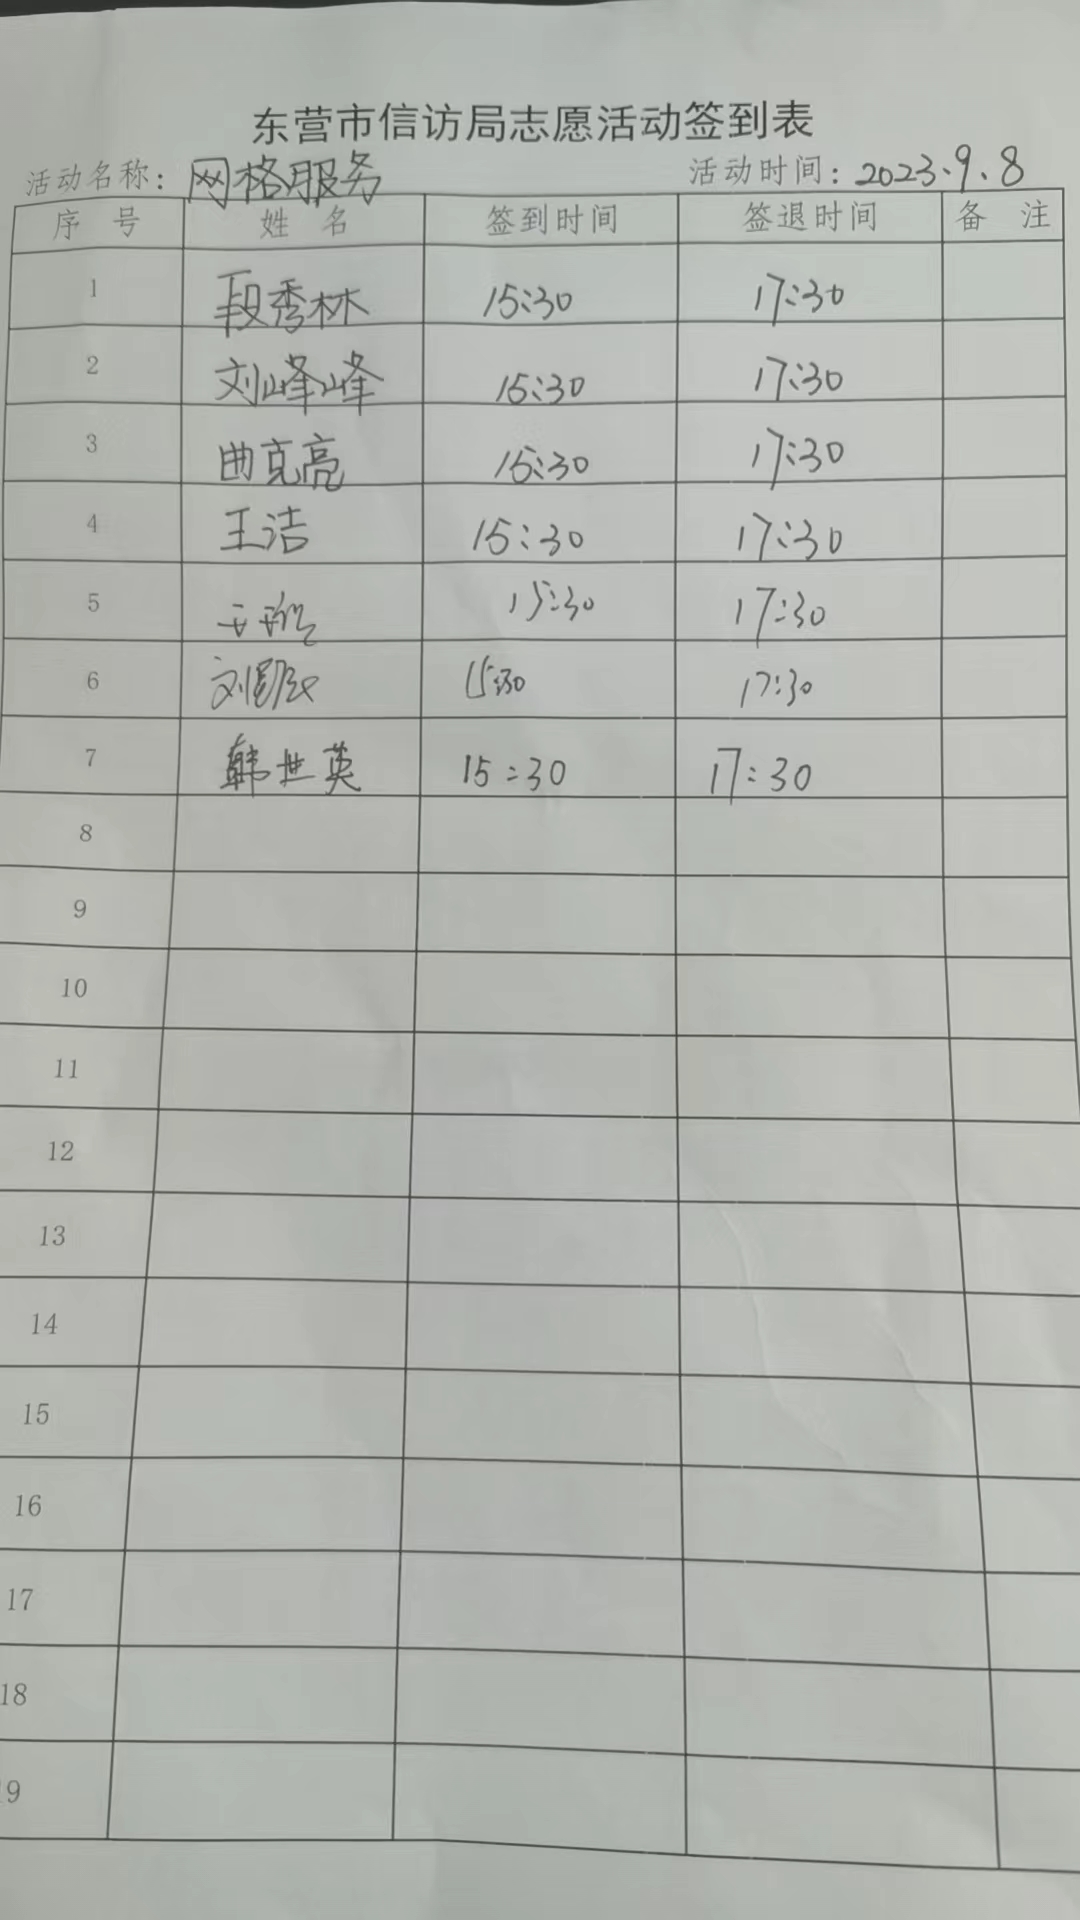 东营市信访局志愿活动签到表
活动名称：网格服务 活动时间：2023.9.8
序 号 姓 名 签到时间 签退时间 备 注
1 段秀林 15:30 17:30
2 刘峰峰 15:30 17:30
3 曲克亮 15:30 17:30
4 王洁 15:30 17:30
5 15:30 17:30
6 刘 15:30 17:30
7 韩世英 15:30 17:30
8
9
10
11
12
13
14
15
16
17
18
19